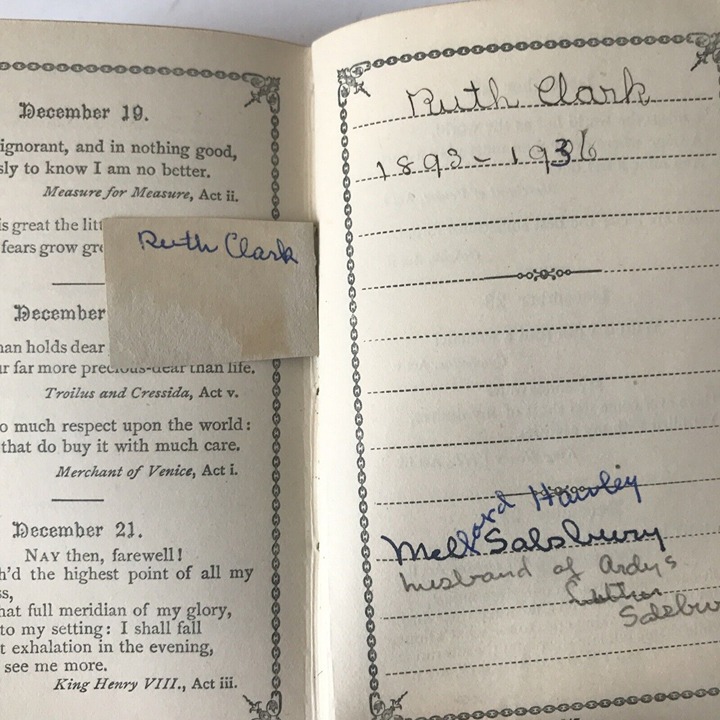 December 19.
ignorant, and in nothing good,
sly to know I am no better.
Measure for Measure, Act ii.
is great the litt
fears grow gre
Ruth Clark
December
man holds dear
r far more precious-dear than life.
Troilus and Cressida, Act v.
o much respect upon the world:
that do buy it with much care.
Merchant of Venice, Act i.
December 21.
NAY then, farewell!
h'd the highest point of all my
s,
hat full meridian of my glory,
to my setting: I shall fall
t exhalation in the evening,
see me more.
King Henry VIII., Act iii.
Ruth Clark
1893-1936
ord Hawley
Mell Salsbury
husband of Ardys
Luther
Salsbu